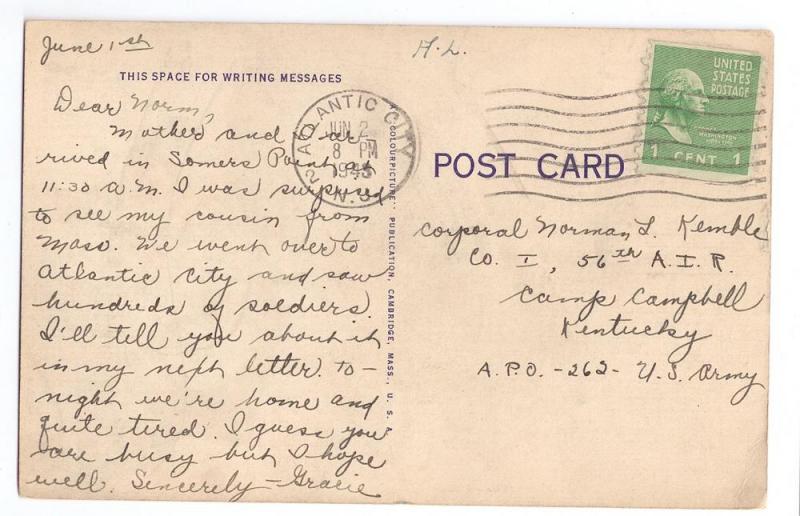 June 1st
THIS SPACE FOR WRITING MESSAGES
Dear Norm,
Mother and I ar-
rived in Somers Point at
11:30 a.m. I was surprised
to see my cousin from
Mass. We went over to
Atlantic City and saw
hundreds of soldiers.
I'll tell you about it
in my next letter. To-
night we're home and
quite tired. I guess you
are busy but I hope
well. Sincerely - Gracie
"COLOURPICTURE" PUBLICATION, CAMBRIDGE, MASS., U. S. A.
H.L.
ATLANTIC CITY
JUN 2
8 PM
1943
N.J.
2
UNITED
STATES
POSTAGE
WASHINGTON
1 CENT 1
POST CARD
Corporal Norman L. Kemble
Co. I, 56th A.I.R.
Camp Campbell
Kentucky
A.P.O. - 262 - U.S. Army